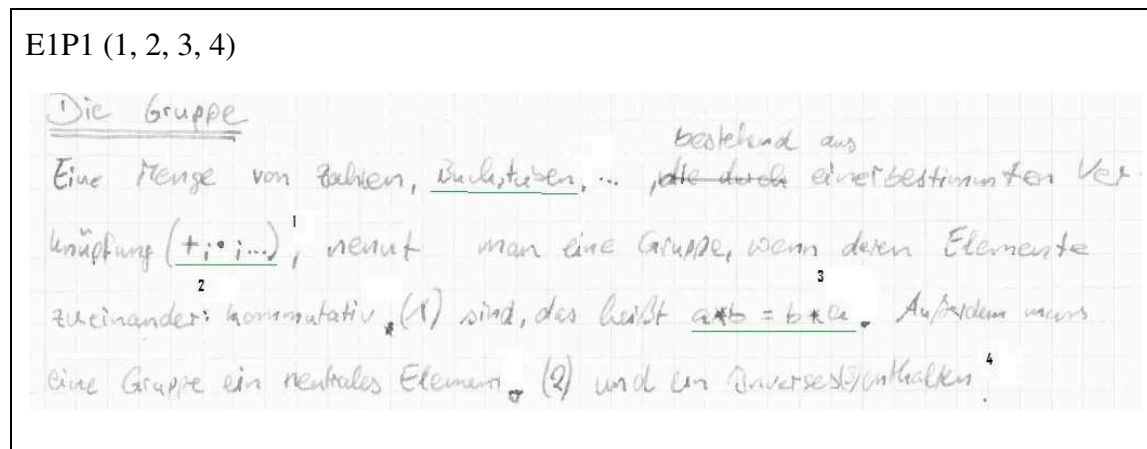 E1P1 (1, 2, 3, 4)
Die Gruppe
bestehend aus
Eine Menge von Zahlen, Buchstaben, ... , die durch einer bestimmten Ver-
1
knüpfung (+; •; ...), nennt man eine Gruppe, wenn deren Elemente
2 3
zueinander: kommutativ (1) sind, das heißt a*b = b*a. Außerdem muss
4
eine Gruppe ein neutrales Element (2) und ein Inverses(3) enthalten.